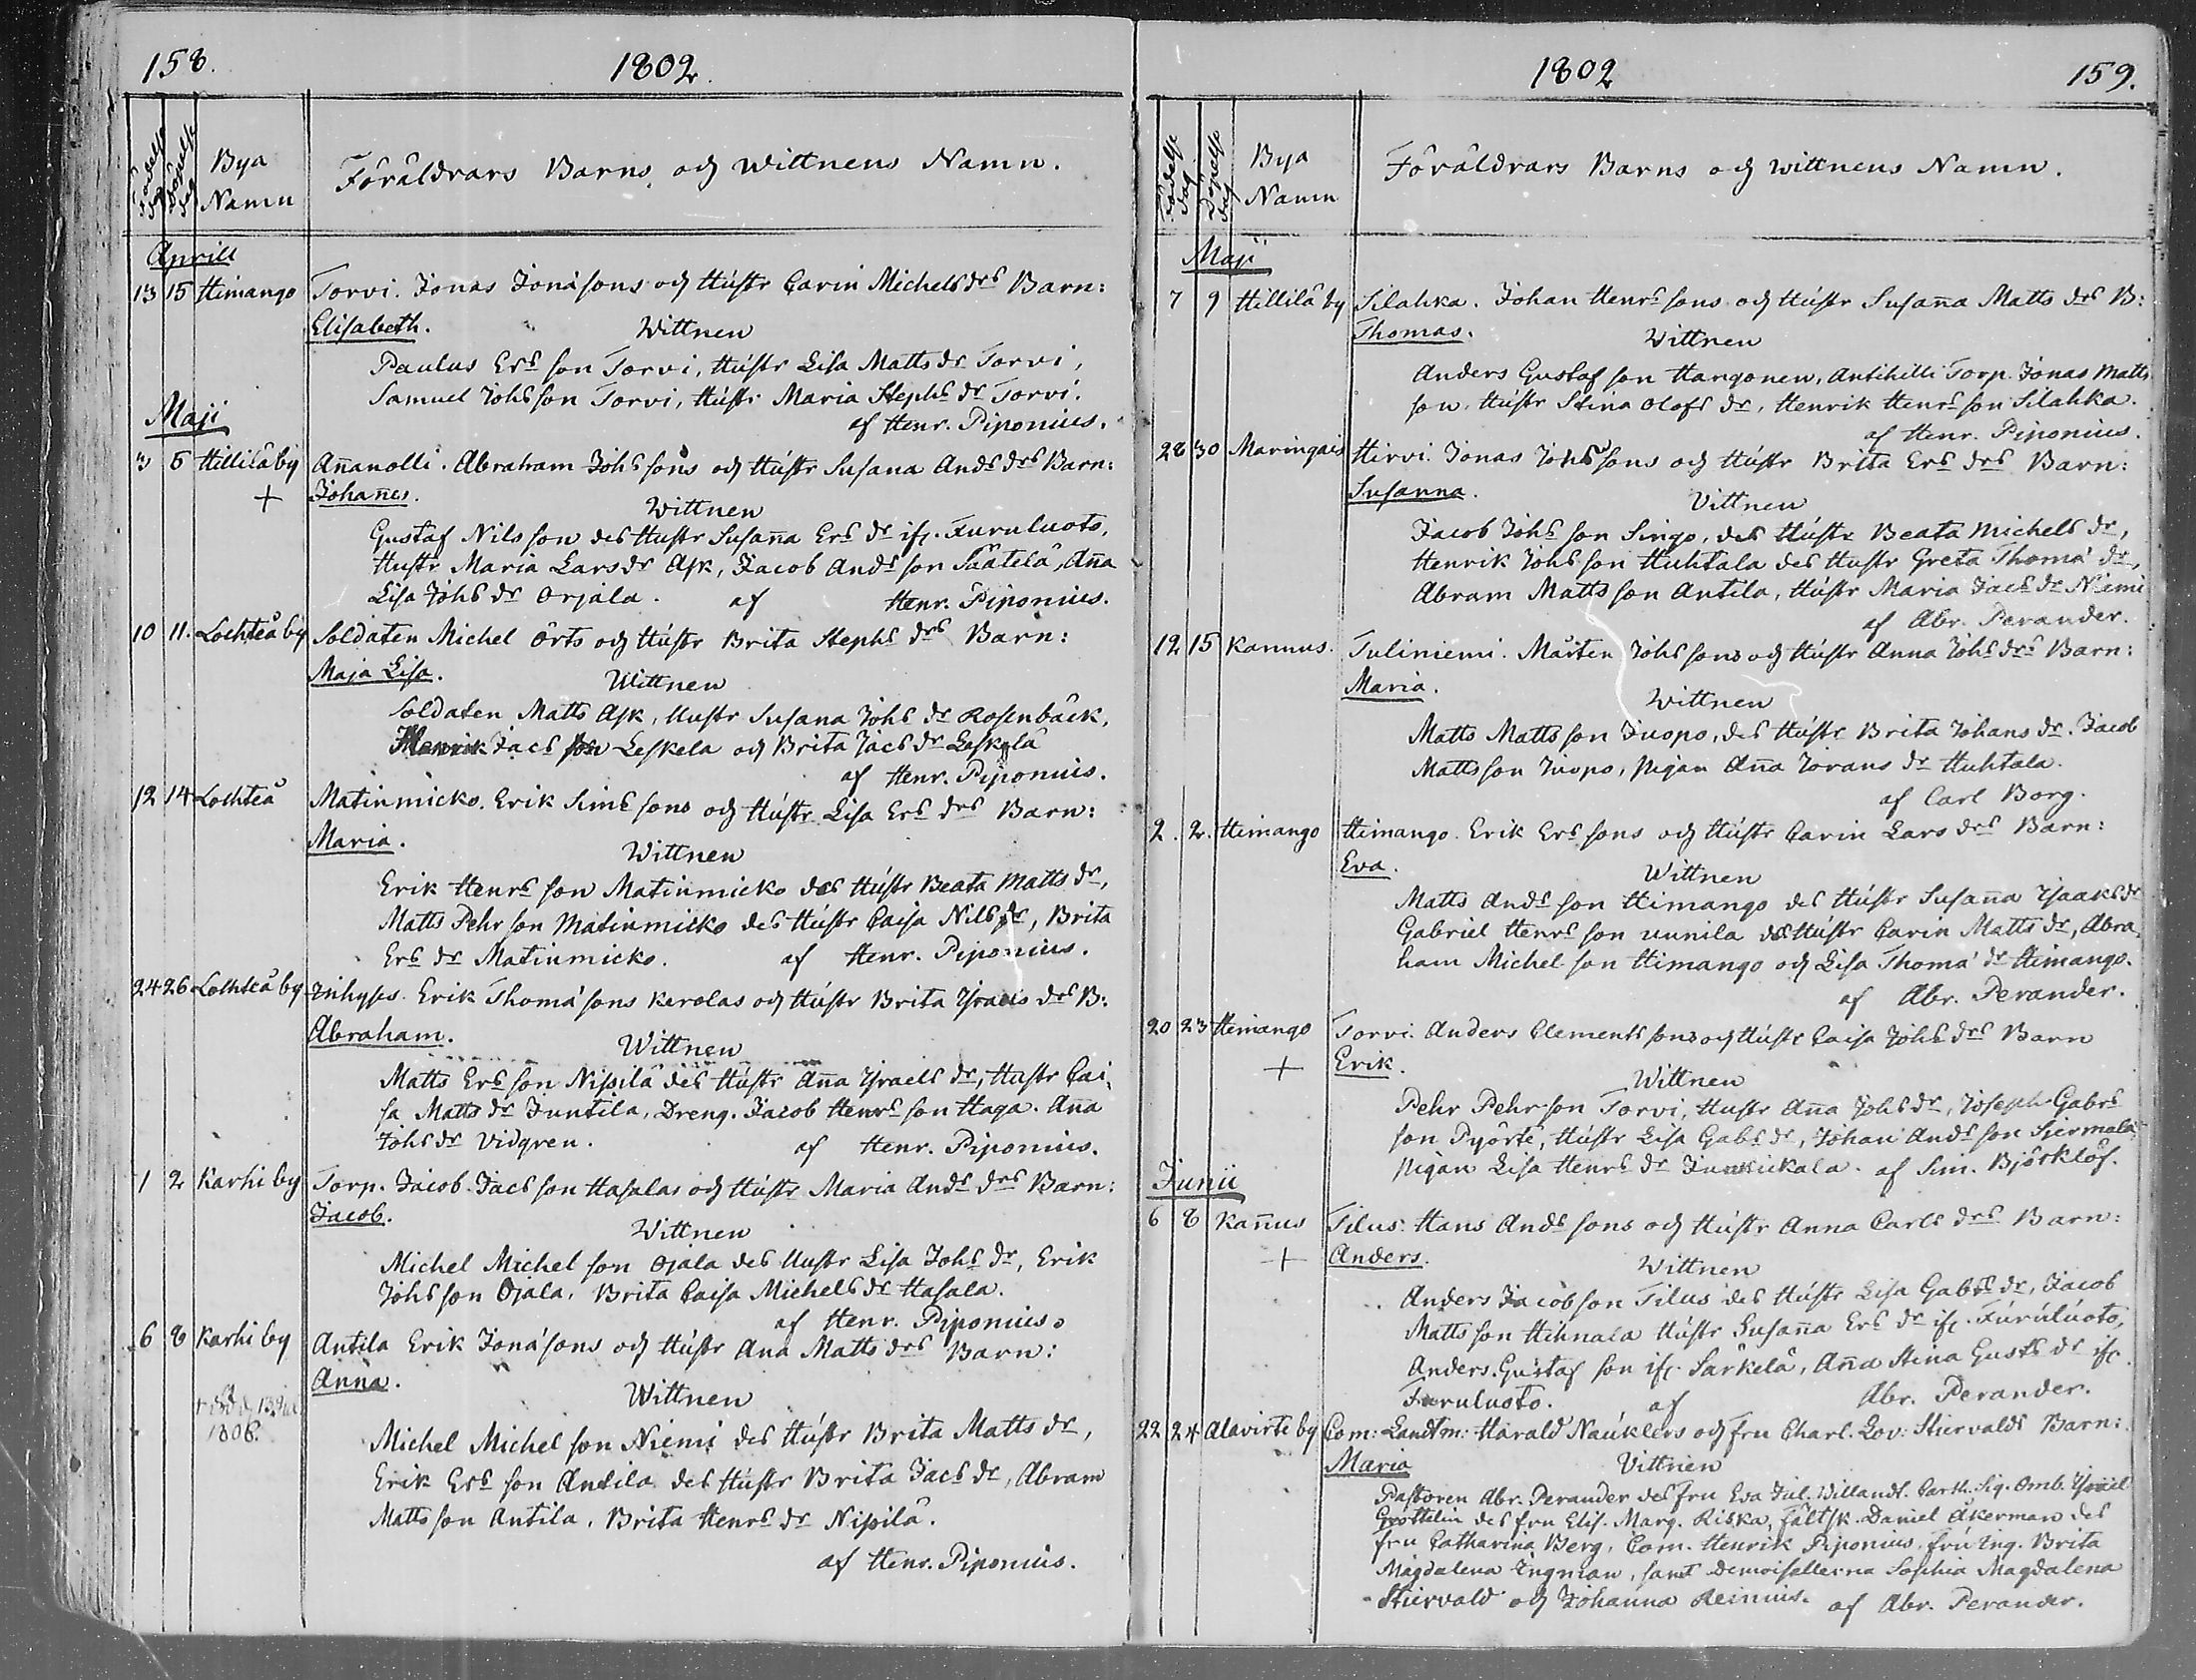 158.
1802.
Födelse dag
Döpelse dag
Bya Namn
Föräldrars Barns och wittnens Namn.
Aprill
13 15 Himango Torvi. Jonas Jonæsons och Hustr Carin Michels drs Barn:
Elisabeth. Wittnen
Paulus Ers son Torvi, Hustr Lisa Matts dr Torvi,
Samuel Johs son Torvi, Hustr Maria Stephs dr Torvi.
af Henr. Piponius.
Maji
3 5 Hillilä by Añanolli. Abraham Johs sons och Hustr Susana Ands drs Barn:
+ Johañes. Wittnen
Gustaf Nils son des Hustr Susaña Ers dr ifr. Furuluoto,
Hustr Maria Lars dr Ask, Jacob Ands son Säätelä, Aña
Lisa Johs dr Orjala. af Henr. Piponius.
10 11. Lochteå by Soldaten Michel Örts och Hustr Brita Stephs drs Barn:
Maja Lisa. Wittnen
Soldaten Matts Ask, Hustr Susana Johs dr Rosenbäck,
Henrik Jacs son Leskela och Brita Jacs dr Leskelä
af Henr. Piponius.
12 14 Lochteå Matinmicko. Erik Sims sons och Hustr Lisa Ers drs Barn:
Maria. Wittnen
Erik Henrs son Matinmicko des Hustr Beata Matts dr,
Matts Pehr son Matinmicko des Hustr Caisa Nils dr, Brita
Ers dr Matinmicko. af Henr. Piponius.
24 26 Lochteå by Erik Thomæ sons Kerolas och Hustr Brita Israels drs B:
Abraham. Wittnen
Matts Ers son Nisilä des Hustr Aña Israels dr, Hustr Cai,
sa Matts dr Juntila, Dreng. Jacob Henrs son Haga. Aña
Johs dr Vidgren. af Henr. Piponius.
1 2 Karhi by Torp. Jacob. Jacs son Hasalas och Hustr Maria Ands drs Barn:
Jacob. Wittnen
Michel Michel son Ojala des Hustr Lisa Johs dr, Erik
Johs son Ojala, Brita Caisa Michels dr Hasala.
af Henr. Piponius.
6 8 Karhi by Antila Erik Jonæsons och Hustr Ana Matts drs Barn:
Anna. Wittnen
1808.
Michel Michel son Niemi des Hustr Brita Matts dr,
Erik Ers son Antila des Hustr Brita Jacs dr, Abram
Matts son Antila, Brita Henrs dr Nisilä.
af Henr. Piponius.
1802
159.
Födelse dag
Döpelse dag
Bya Namn
Föräldrars Barns och wittnens Namn.
Maji
7 9 Hillilä by Silahka. Johan Henrs sons och Hustr Susaña Matts drs B:
Thomas. Wittnen
Anders Gustaf son Hangonen, Antihilli Torp. Jonas Matts
son, Hustr Stina Olofs dr, Henrik Henrs son Silahka.
af Henr. Piponius.
28 30 Maringais Hirvi. Jonas Johs sons och Hustr Brita Ers drs Barn:
Susanna. Vittnen
Jacob Johs son Singo, des Hustr Beata Michels dr,
Henrik Johs son Huhtala des Hustr Greta Thomæ dr,
Abram Matts son Antila, Hustr Maria Jacs dr Niemi
af Abr. Perander.
12 15 Kannus. Tuliniemi. Mårten Johs sons och Hustr Anna Johs drs Barn:
Maria. Wittnen
Matts Matts son Juopo, des Hustr Brita Johans dr. Jacob
Matts son Juopo, pigan Aña Jörans dr Huhtala.
af Carl Borg.
2. 2. Himango Himango. Erik Ers sons och Hustr Carin Lars drs Barn:
Eva. Wittnen
Matts Ands son Himango des Hustr Susaña Isaaks dr
Gabriel Henrs son Uunila des Hustr Carin Matts dr, Abra,
ham Michel son Himango och Lisa Thomæ dr Himango.
af Abr. Perander.
20 23 Himango Torvi. Anders Clements sons och Hustr Caisa Johs drs Barn
+ Erik. Wittnen
Pehr Pehr son Torvi, Hustr Aña Johs dr, Joseph Gabrs
son Pyörte, Hustr Lisa Gabs dr, Johan Ands son Siermala,
pigan Lisa Henrs dr Junkickala. af Sim. Björklöf.
Junii
6 8 Kañus Tilus. Hans Ands sons och Hustr Anna Carls drs Barn:
+ Anders. Wittnen
Anders Jacob son Tilus des Hustr Lisa Gabrs dr, Jacob
Matts son Hihnala Hustr Susaña Ers dr ifr. Furuluoto,
Anders Gustaf son ifr Särkelä, Aña Stina Gusts dr ifr
Furuluoto. af Abr. Perander.
22 24 Alavirte by Com: Landtm: Harald Nauklers och fru Charl. Lov: Stiervalds Barn:
Maria Vittnen
Pastoren Abr. Perander des fru Eva Jul. Willandt. Israel
des fru Elis. Marg. Riska, fältsk. Daniel Åkerman des
fru Catharina Berg, Com. Henrik Piponius, fru Ing. Brita
Magdalena Ingman, samt Demoisellerna Sophia Magdalena
Stiervald och Johanna Reinius. af Abr. Perander.